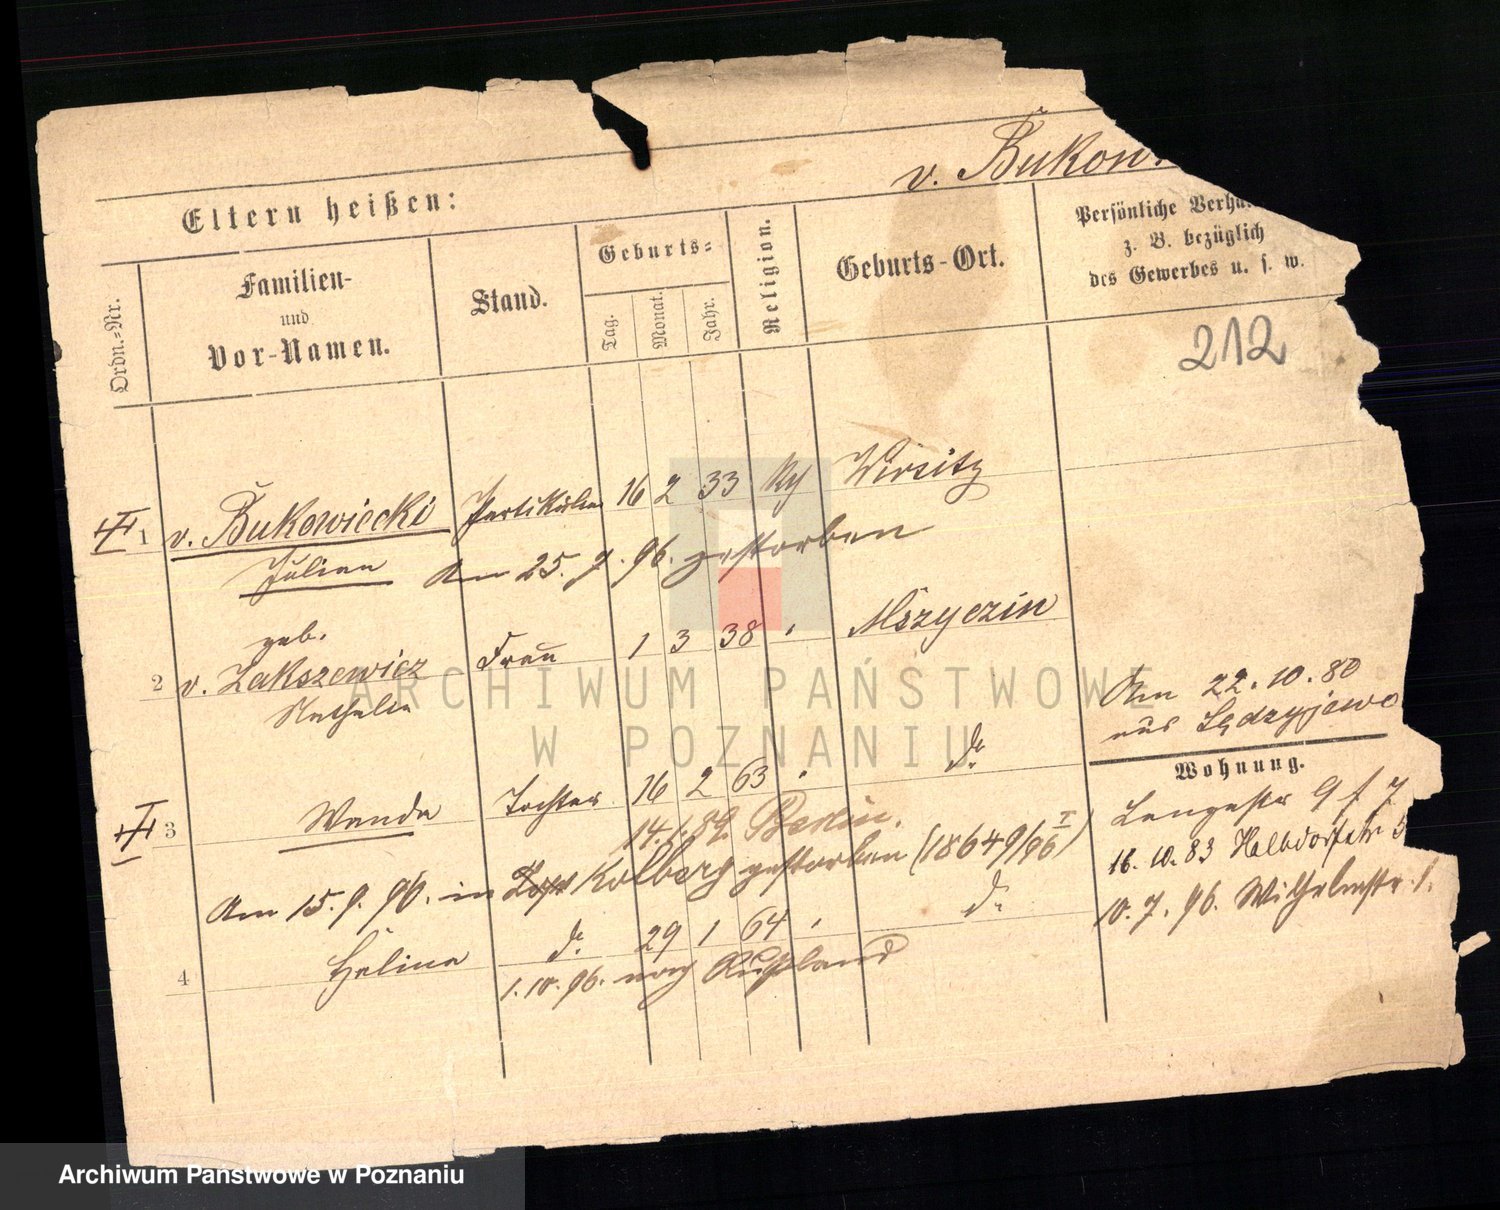 v. Bukow
Eltern heißen:
Ordn.-Nr.
Familien-
und
Vor-Namen.
Stand.
Geburts-
Tag.
Monat.
Jahr.
Religion.
Geburts-Ort.
Persönliche Verhä
z. B. bezüglich
des Gewerbes u. s. w.
212
1 v. Bukowiecki Partikulier 16 2 33 Wirsitz
Julian Am 25. 7. 96. gestorben
geb.
2 v. Zakszewicz Frau 1 3 38 Mszyczin
Nathalia
Am 22.10.80
aus Lędzyjewo
3 Wanda Tochter 16 2 63 do
14.1.89. Berlin.
Am 15.9.96. in Kolberg gestorben (18649/96 I)
4 Helina do. 29 1 64 do
1.10.96. nach Rußland
Wohnung.
Langestr 9 f 7
16.10.83 Halbdorfstr 5
10.7.96. Wilhelmstr. 1.
ARCHIWUM PAŃSTWOWE
W POZNANIU
Archiwum Państwowe w Poznaniu